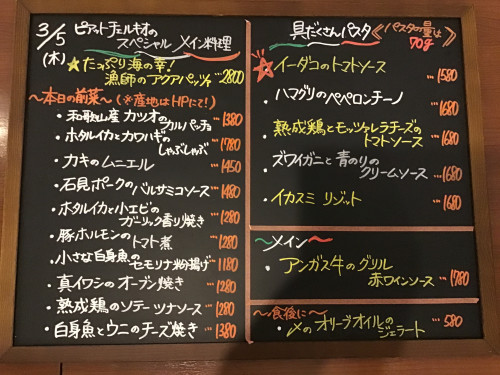 3/5
(木)
ピアットチェルキオの
スペシャル メイン料理
☆たっぷり海の幸!
漁師のアクアパッツァ …2800
〜本日の前菜〜(※産地はHPにて!)
・和歌山産 カツオの
カルパッチョ …1380
・ホタルイカとカワハギの
しゃぶしゃぶ …1780
・カキのムニエル …1450
・石見ポークのバルサミコソース …1480
・ホタルイカと小エビの
ガーリック香り焼き …1280
・豚ホルモンの
トマト煮 …1280
・小さな白身魚の
セモリナ粉揚げ …1180
・真イワシのオーブン焼き …1280
・熟成鶏のソテー ツナソース …1280
・白身魚とウニのチーズ焼き …1380
具だくさんパスタ
《パスタの量は
70g》
☆イーダコのトマトソース …1580
・ハマグリのペペロンチーノ …1680
・熟成鶏とモッツァレラチーズの
トマトソース …1680
・ズワイガニと青のりの
クリームソース …1680
・イカスミ リゾット …1680
〜メイン〜
・アンガス牛のグリル
赤ワインソース …1780
〜食後に〜
・〆のオリーブオイルの
ジェラート …580